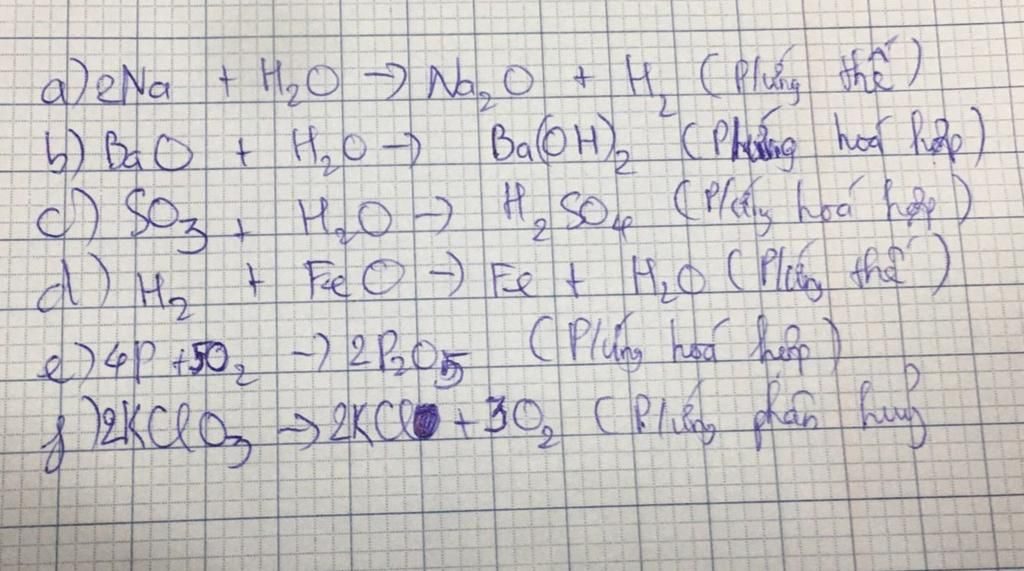 a) 2Na + H₂O → Na₂O + H₂ (P/ứng thế)
b) BaO + H₂O → Ba(OH)₂ (Phứng hoá hợp)
c) SO₃ + H₂O → H₂SO₄ (P/ứng hoá hợp)
d) H₂ + FeO → Fe + H₂O (P/ứng thế)
e) 4P + 5O₂ → 2P₂O₅ (P/ứng hoá hợp)
f) 2KClO₃ → 2KCl + 3O₂ (P/ứng phân huỷ